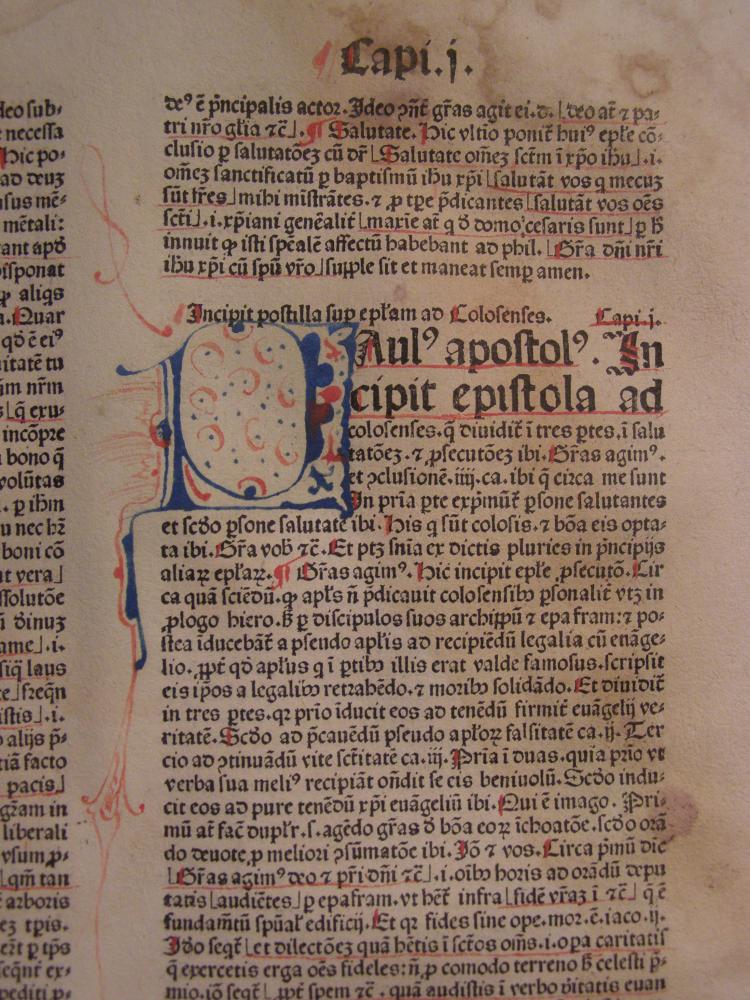 Capi.j.
deo sub⸗
necessa
Hic po⸗
ad deuz
usus mē⸗
mētali:
rant apd̄
disponat
ꝓ aliqs
a. Quar
qd̄ ē ei⁹
uitatē tu
im nr̄m
s⌊q̄ exu⸗
incōpre
bono q̄
volūtas
. ꝑ ihm̄
u nec hꝫ
boni cō
ut vera⌋
ssolutōe
ū diuuz
ame⌋.i.
siq̄ laus
te⌊freqn̄
istis⌋.i.
alijs p̄⸗
tiā facto
pacis⌋
gr̄am in
liberali
vsum ꝓ⸗
⌊qm̄ tan
arboris
ez tp̄is.
ꝑ tp̄s
seqn̄t ex⸗
pediti ꝑ⸗
de⁹ ē p̄ncipalis actor. Ideo ꝯn̄t gr̄as agit ei.d. ⌊deo at̄ ⁊ pa⸗
tri nr̄o gl̄ia ⁊c̄⌋. ¶ Salutate. Hic vltīo ponit̄ hui⁹ epl̄e cō⸗
clusio ꝑ salutatōeꝫ cū dr̄ ⌊Salutate om̄eꝫ sctm̄ i xp̄o ihu⌋.i.
om̄eꝫ sanctificatū ꝑ baptismū ihu xp̄i ⌊salutāt vos q mecuꝫ
sūt fr̄es⌋ mihi mīstrātes. ⁊ ꝓ tp̄e p̄dicantes ⌊salutāt vos oēs
sctī⌋.i. xp̄iani genēalit̄ ⌊maxīe at̄ q d̄ domo cesaris sunt⌋ ꝑ h̄
innuit ꝙ isti spēalē affectū habebant ad phil. ⌊Gr̄a dn̄i nr̄i
ihu xp̄i cū sp̄u vr̄o⌋ supple sit et maneat semꝑ amen.
Incipit postilla suꝑ epl̄am ad Colosenses. Capi.j.
PAul⁹ apostol⁹. In
cipit epistola ad
colosenses. q̄ diuidit̄ i tres ꝑtes. i salu
tatōeꝫ. ⁊ ꝓsecutōeꝫ ibi. Gr̄as agim⁹.
et ꝯclusionē. iiij.ca. ibi q̄ circa me sunt
In pria ꝑte exp̄mūt̄ ꝑsone salutantes
et scd̄o ꝑsone salutate ibi. His q sūt colosis. ⁊ bōa eis opta⸗
ta ibi. Gr̄a vob̄ ⁊c̄. Et ptꝫ sn̄ia ex dictis pluries in p̄ncipijs
aliaꝝ epl̄aꝝ. ¶ Gr̄as agim⁹. Hic incipit epl̄e ꝓsecutō. Cir
ca quā sciēdū. ꝙ apl̄s n̄ p̄dicauit colosensibꝫ ꝑsonalit̄ vtꝫ in
ꝓlogo hiero. ß ꝑ discipulos suos archippū ⁊ epafram: ⁊ po⸗
stea iducebāt̄ a pseudo apl̄is ad recipiēdū legalia cū euāge⸗
lio. ꝓpt̄ qd̄ apl̄us q i ꝑtibꝫ illis erat valde famosus. scripsit
eis ip̄os a legalibꝫ retrahēdo. ⁊ moribꝫ solidādo. Et diuidit̄
in tres ꝑtes. qꝛ prīo iducit eos ad tenēdū firmit̄ euāgelij ve⸗
ritatē. Scd̄o ad p̄cauēdū pseudo apl̄oꝝ falsitatē ca.ij. Ter
cio ad ꝯtinuādū vite sctītatē ca.iij. Pria i duas. quia prīo vt
verba sua meli⁹ recipiāt on̄dit se eis beniuolū. Scd̄o indu⸗
cit eos ad pure tenēdū xp̄i euāgeliū ibi. Qui ē imago. Pri⸗
mū at̄ facē dupl̄r. s. agēdo gr̄as d̄ bōa eoꝝ ichoatōe. scd̄o orā
do deuote ꝓ meliori ꝯsūmatōe ibi. Iō ⁊ vos. Circa p̄mū dic̄
⌊Gr̄as agim⁹ deo ⁊ pr̄i dn̄i ⁊c̄⌋.i. oībꝫ horis ad orādū depu
tatis ⌊audiētes⌋ ꝑ epafram. vt hēt̄ infra ⌊fidē vr̄aꝫ i ⁊c̄⌋ q̄ ē
fundam̄tū spūal̄ edificij. Et qꝛ fides sine ope. mor. ē. iaco. ij.
Ido seqt̄ ⌊et dilectōeꝫ quā hētis i scto̅s om̄s. i. opa caritatis
q̄ exercetis erga oēs fideles: n̄ ꝓ comodo terreno ß celesti p̄⸗
mio. iō seqt̄ ⌊ꝓpt̄ spem ⁊c̄. quā audistis i verbo v̄itatis euan